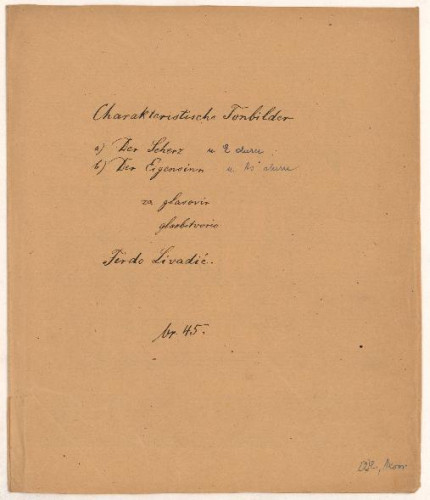 Charakteristische Tonbilder
a) Der Scherz u E duru
b) Der Eigensinn u As duru
za glasovir
glasbotvorio
Ferdo Livadić.
br. 45.